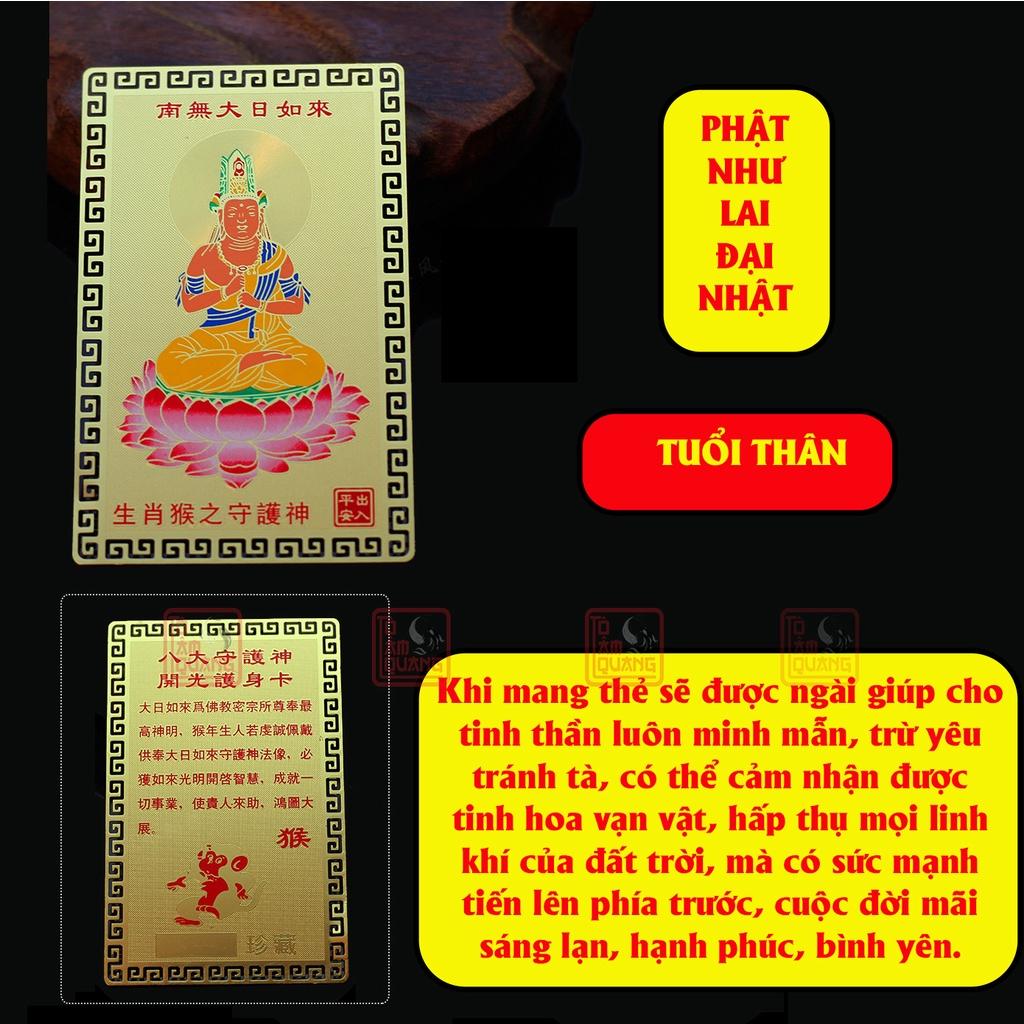 南無大日如來
生肖猴之守護神
出入
平安
PHẬT
NHƯ
LAI
ĐẠI
NHẬT
TUỔI THÂN
八大守護神
開光護身卡
大日如來爲佛教密宗所尊奉最
高神明、猴年生人若虔誠佩戴
供奉大日如來守護神法像、必
獲如來光明開啓智慧、成就一
切事業、使貴人來助、鴻圖大
展。
猴
珍藏
TỘ
TÂM
QUANG
TỘ
TÂM
QUANG
TỘ
TÂM
QUANG
TỘ
TÂM
QUANG
Khi mang thẻ sẽ được ngài giúp cho
tinh thần luôn minh mẫn, trừ yêu
tránh tà, có thể cảm nhận được
tinh hoa vạn vật, hấp thụ mọi linh
khí của đất trời, mà có sức mạnh
tiến lên phía trước, cuộc đời mãi
sáng lạn, hạnh phúc, bình yên.